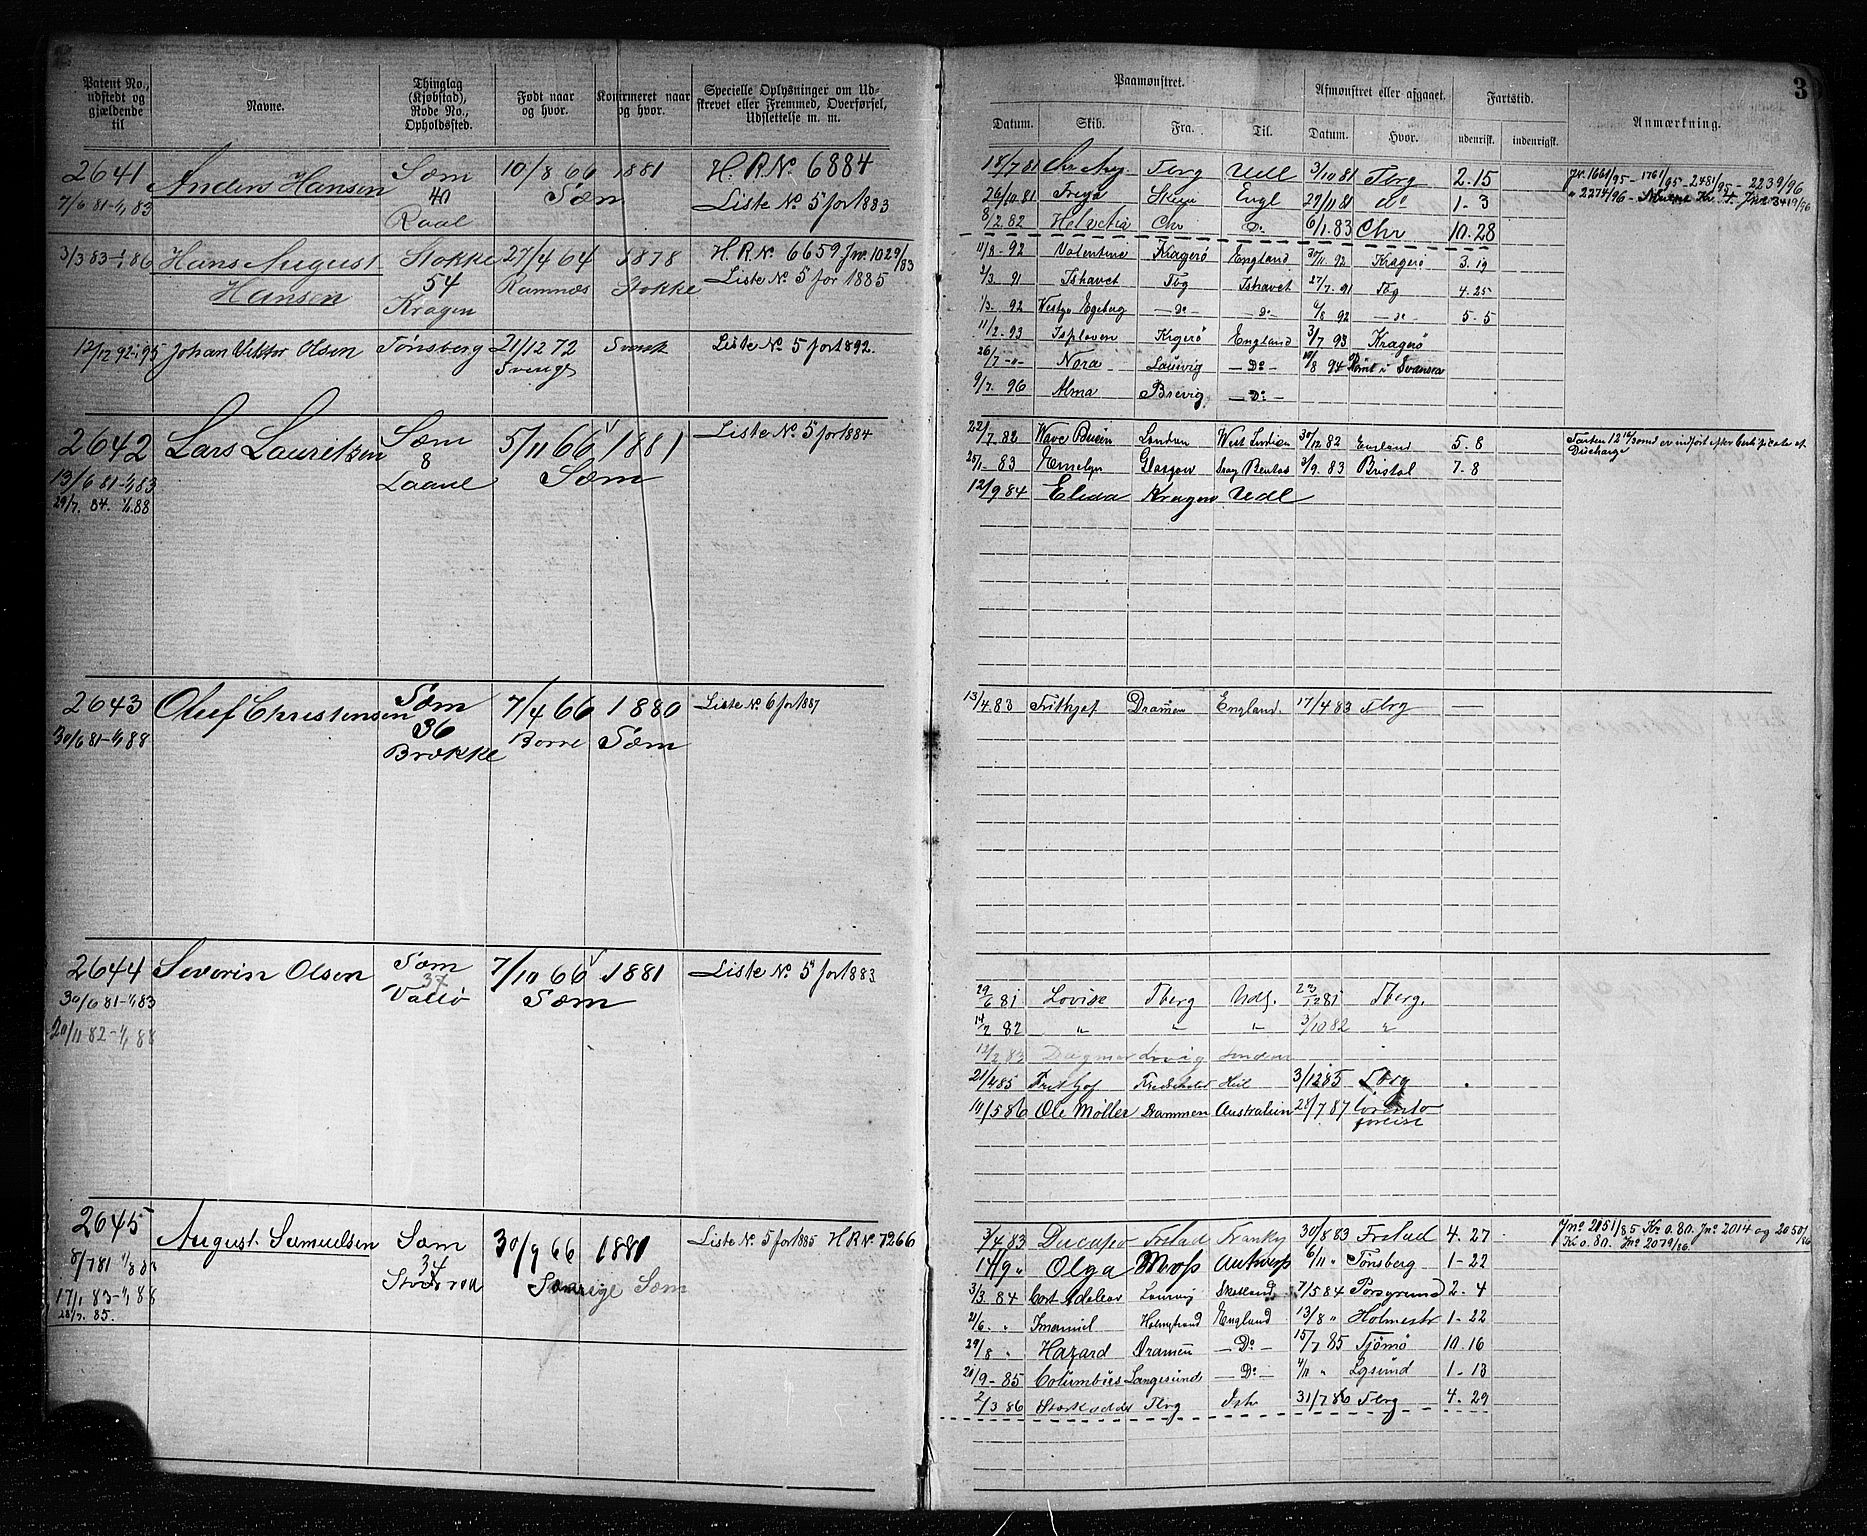 Patent No., udstedt og gjældende til
Navne.
Thinglag (Kjøbstad), Rode No., Opholdssted.
Født naar og hvor.
Konfirmeret naar og hvor.
Specielle Oplysninger om Udskrevet eller Fremmed, Overførsel, Udslettelse m. m.
Paamønstret.
Afmønstret eller afgaaet.
Fartstid.
Anmærkning.
3
Datum. Skib. Fra. Til. Datum. Hvor. udenrisk. indenrigsk.
2641 Anders Hansen Sæm 10/8 66 1881 H.R.No 6884
7/6 81-1/1 83 40 Sæm Liste No 5 for 1883
Raal
3/3 83-1/1 86 Hans August Stokke 27/4 64 1878 H.R.No 6659 Jno 1029/83
Hansen 54 Ramnæs Stokke Liste No 5 for 1885
Kragen
12/12 92-1/1 95 Johan Viktor Olsen Tønsberg 21/12 72 Svensk Liste No 5 for 1892.
Sverige
18/7 81 Tbrg Udl 3/10 81 Tbrg 2.15
26/10 81 Freya Skien Engl 29/11 81 do 1-3
8/2 82 Helvetia Chr Do 6/1 83 Chr 10.28
11/8-92 Valentine Kragerø England 30/11 92 Kragerø 3.19
2/3 91 Ishavet Tbg Ishavet 27/7 91 Tbg 4.25
1/3 92 -Do- -Do- 6/8 92 -Do- 5.5
11/2-93 Ispløven Krgerø England 3/7 93 Kragerø
26/7 -"- Nora Laurvig -Do- 10/8 94 Rømt i Svansea
9/7 96 Alma Brevig -Do-
Jno. 1661/95 - 1761/95 - 2481/95 - 2239/96
" 2274/96 - Jno 3419/96
2642 Lars Lauritzen Sæm 5/11 66 1881 Liste No 5 for 1884
13/6 81-1/1 83 8 Sæm
29/7. 84. 1/1.88 Laane
22/7 82 London West Indien 30/12 82 England 5.8
25/1-83 Emelyn Glasgow 3/9. 83 Bristol 7.8
12/9 84 Elida Kragerø Udl
Discharge
2643 Oluf Christensen Sæm 7/4 66 1880 Liste No 6 for 1887
30/6 81-1/1 88 36 Borre Sæm
Brække
13/4 83 Frithjof Drammen England. 17/4 83 Tbrg —
2644 Severin Olsen Sæm 7/10 66 1881 Liste No 5 for 1883
30/6 81-1/1 83 37 Sæm
20/11 82-1/1 88 Vallø
29/6 81 Lovise Tberg Udl. 23/12 81 Tberg.
14/2 82 " " " 3/10 82 "
12/2 83 Dagmar Lrvig London
21/4 85 Frithjof Fredshald Hul 3/12 85 Tbrg
10/5 86 Ole Møller Drammen Australien 28/7 87
2645 August Samuelsen Sæm 30/9 66 1881 Liste No 5 for 1885 H.R.No 7266
8/7 81 1/1 83 34 Sverige Sæm
17/1 83-1/1 88
28/7. 85.
3/4 83 Frstad Franky 30/8 83 Frstad 4.27
14/9 " Olga Moss Antverps 6/11 " Tønsberg 1-22
3/3. 84 Cort Adelaer Laurvig Skotland 7/5 84 Porsgrund 2-4
21/6. " Imanuel Holmstrand England 13/8 " Holmestr 1-22
29/8 " Hazard Dramen -Do- 15/7 85 Tjømø 10.16
20/9-85 Columbus Langesund -Do- 4/11 " Lgsund 1-13
2/3 86 Starkodder Tbrg Ish 31/7 86 Tbrg 4.29
Jno 2151/85 Kr 0.80. Jno 2014 og 2050/86
Kr 0.80. Jno 2079/86.